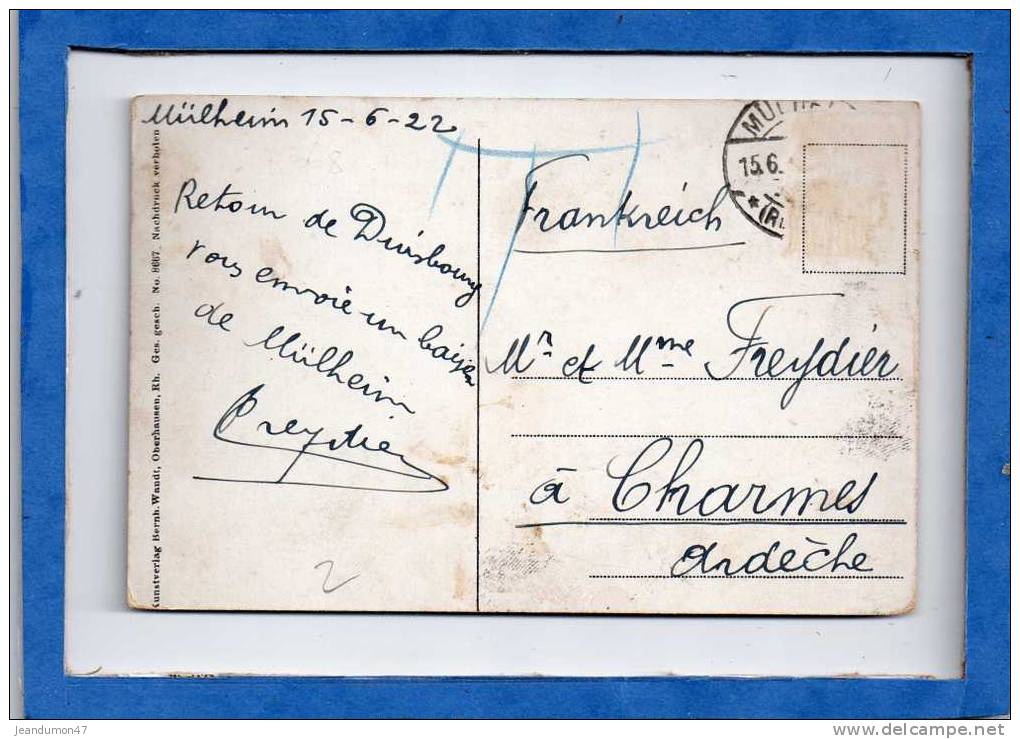 Mülheim 15-6-22
Retour de Duisbourg
vous envoie un baiser
de Mülheim
Freydier
2
Kunstverlag Bernh. Wandt, Oberhausen, Rh. Ges. gesch. No. 8687. Nachdruck verboten
MÜLHEI
15.6.
* (RU
Frankreich
Mr et Mme Freydier
à Charmes
Ardèche
jeandumon47
delcampe.net